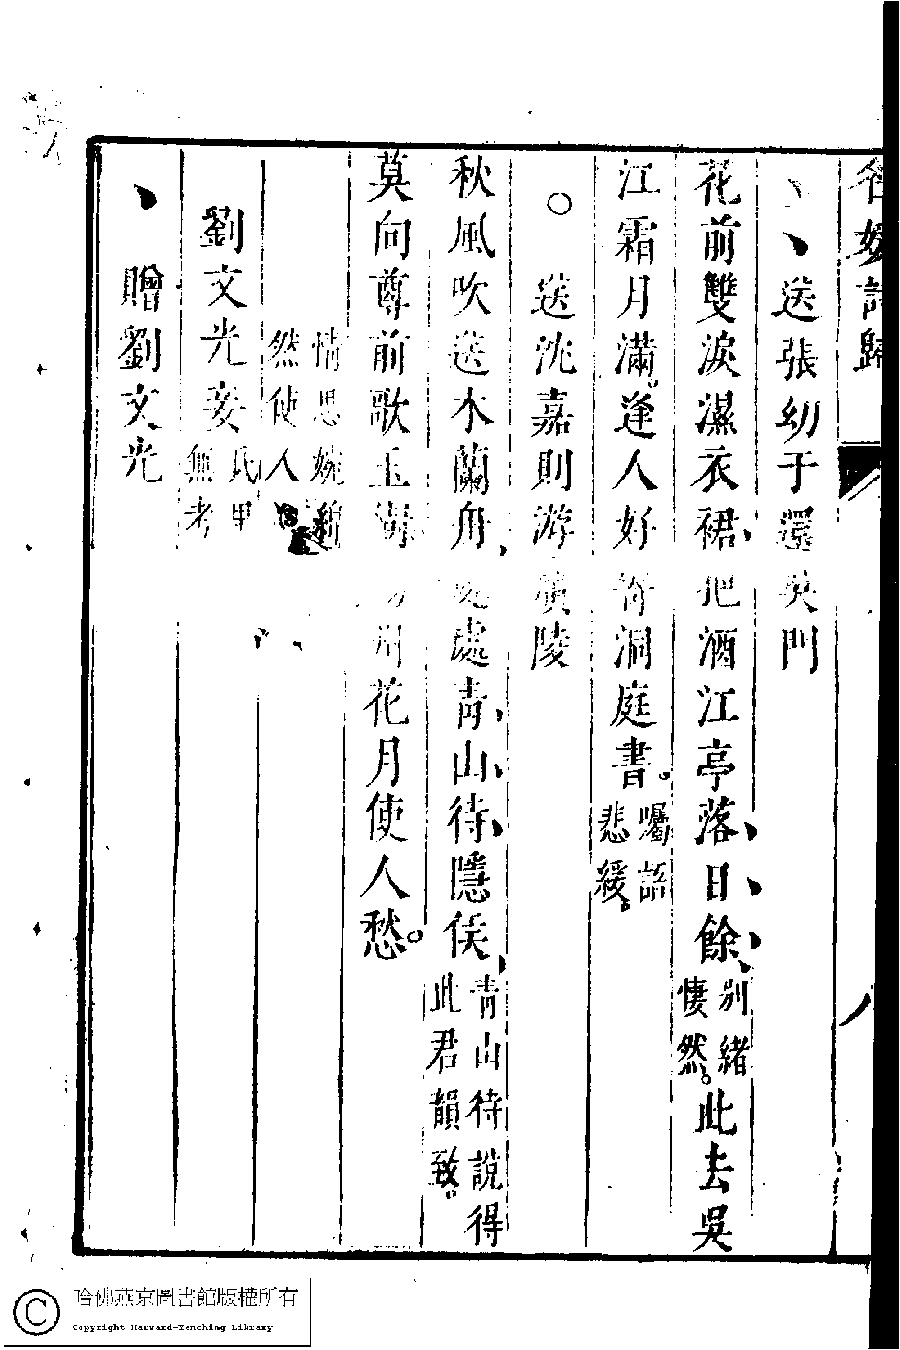 名媛詩歸
送張幼于還吳門
花前雙淚濕衣裾把酒江亭落日餘別緒悽然此去吳
江霜月滿逢人好寄洞庭書囑語悲緩
送沈嘉則游廣陵
秋風吹送木蘭舟處青山待隱侯青山待說得此君韻致
莫向尊前歌玉樹州花月使人愁
情思婉然使人
劉文光妾氏里無考
贈劉文光
哈佛燕京圖書館版權所有
Copyright Harvard-Yenching Library